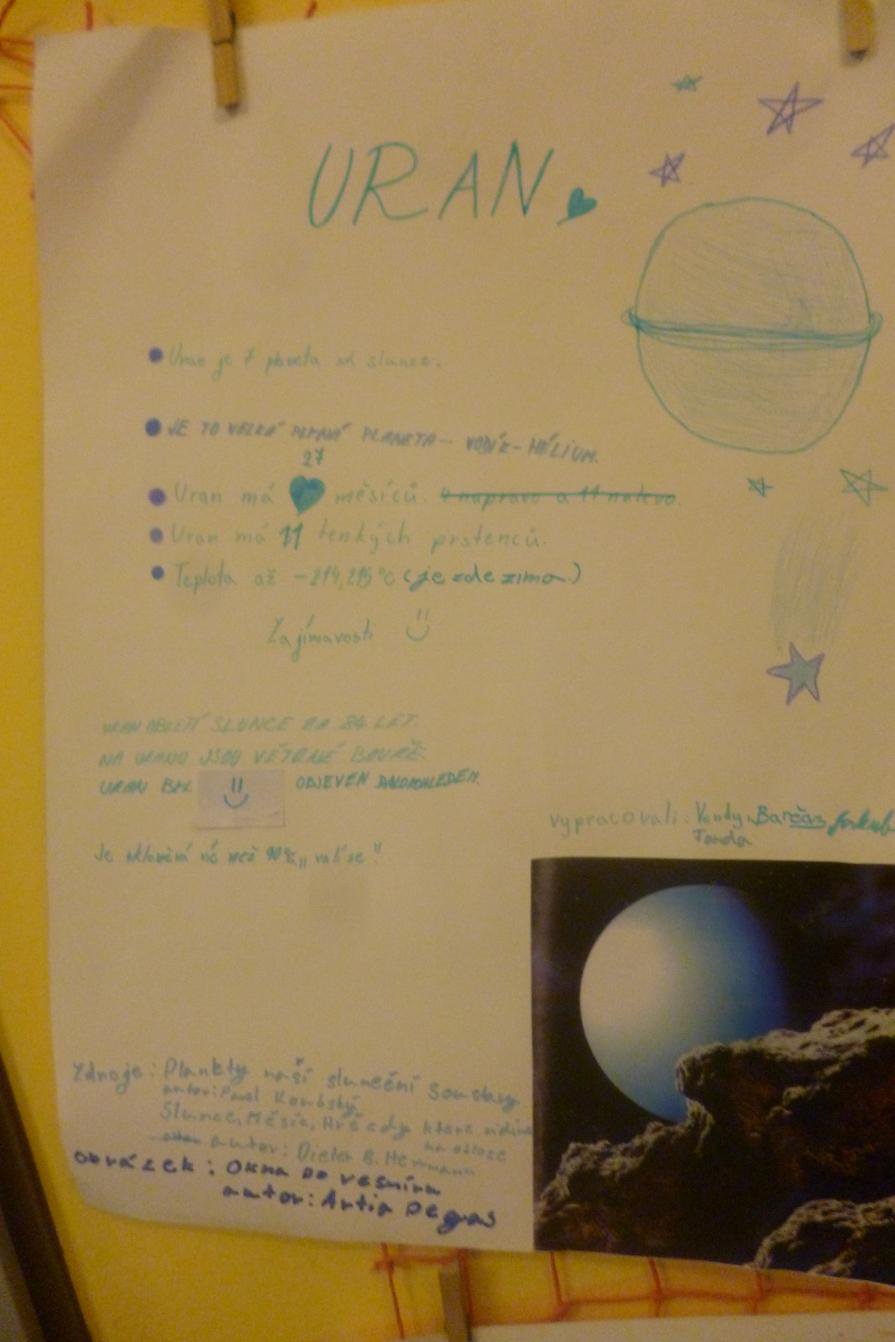 URAN
Uran je 7 planeta od slunce.
JE TO VELKÁ PLYNÁ PLANETA - VODÍK - HÉLIUM.
27
Uran má měsíců. 9 napravo a 11 nalevo.
Uran má 11 tenkých prstenců.
Teplota až -214,215 °C (je zde zima.)
Zajímavosti
URAN OBLETÍ SLUNCE ZA 84 LET.
NA URANU JSOU VĚTRNÉ BOUŘE.
URAN BYL ODJEVEN DALOHLEDEM.
Je víc než 90% „valí se"
vypracovali: Vendy, Barčas, Jakub
Janda
Zdroje: Planety naší sluneční soustavy
autor: Pavel Koubský
Slunce, Měsíc, Hvězdy které vidíme
na obloze
autor: Dieter B. Herrmann
obrázek: Okna do vesmíru
autor: Artia Degas